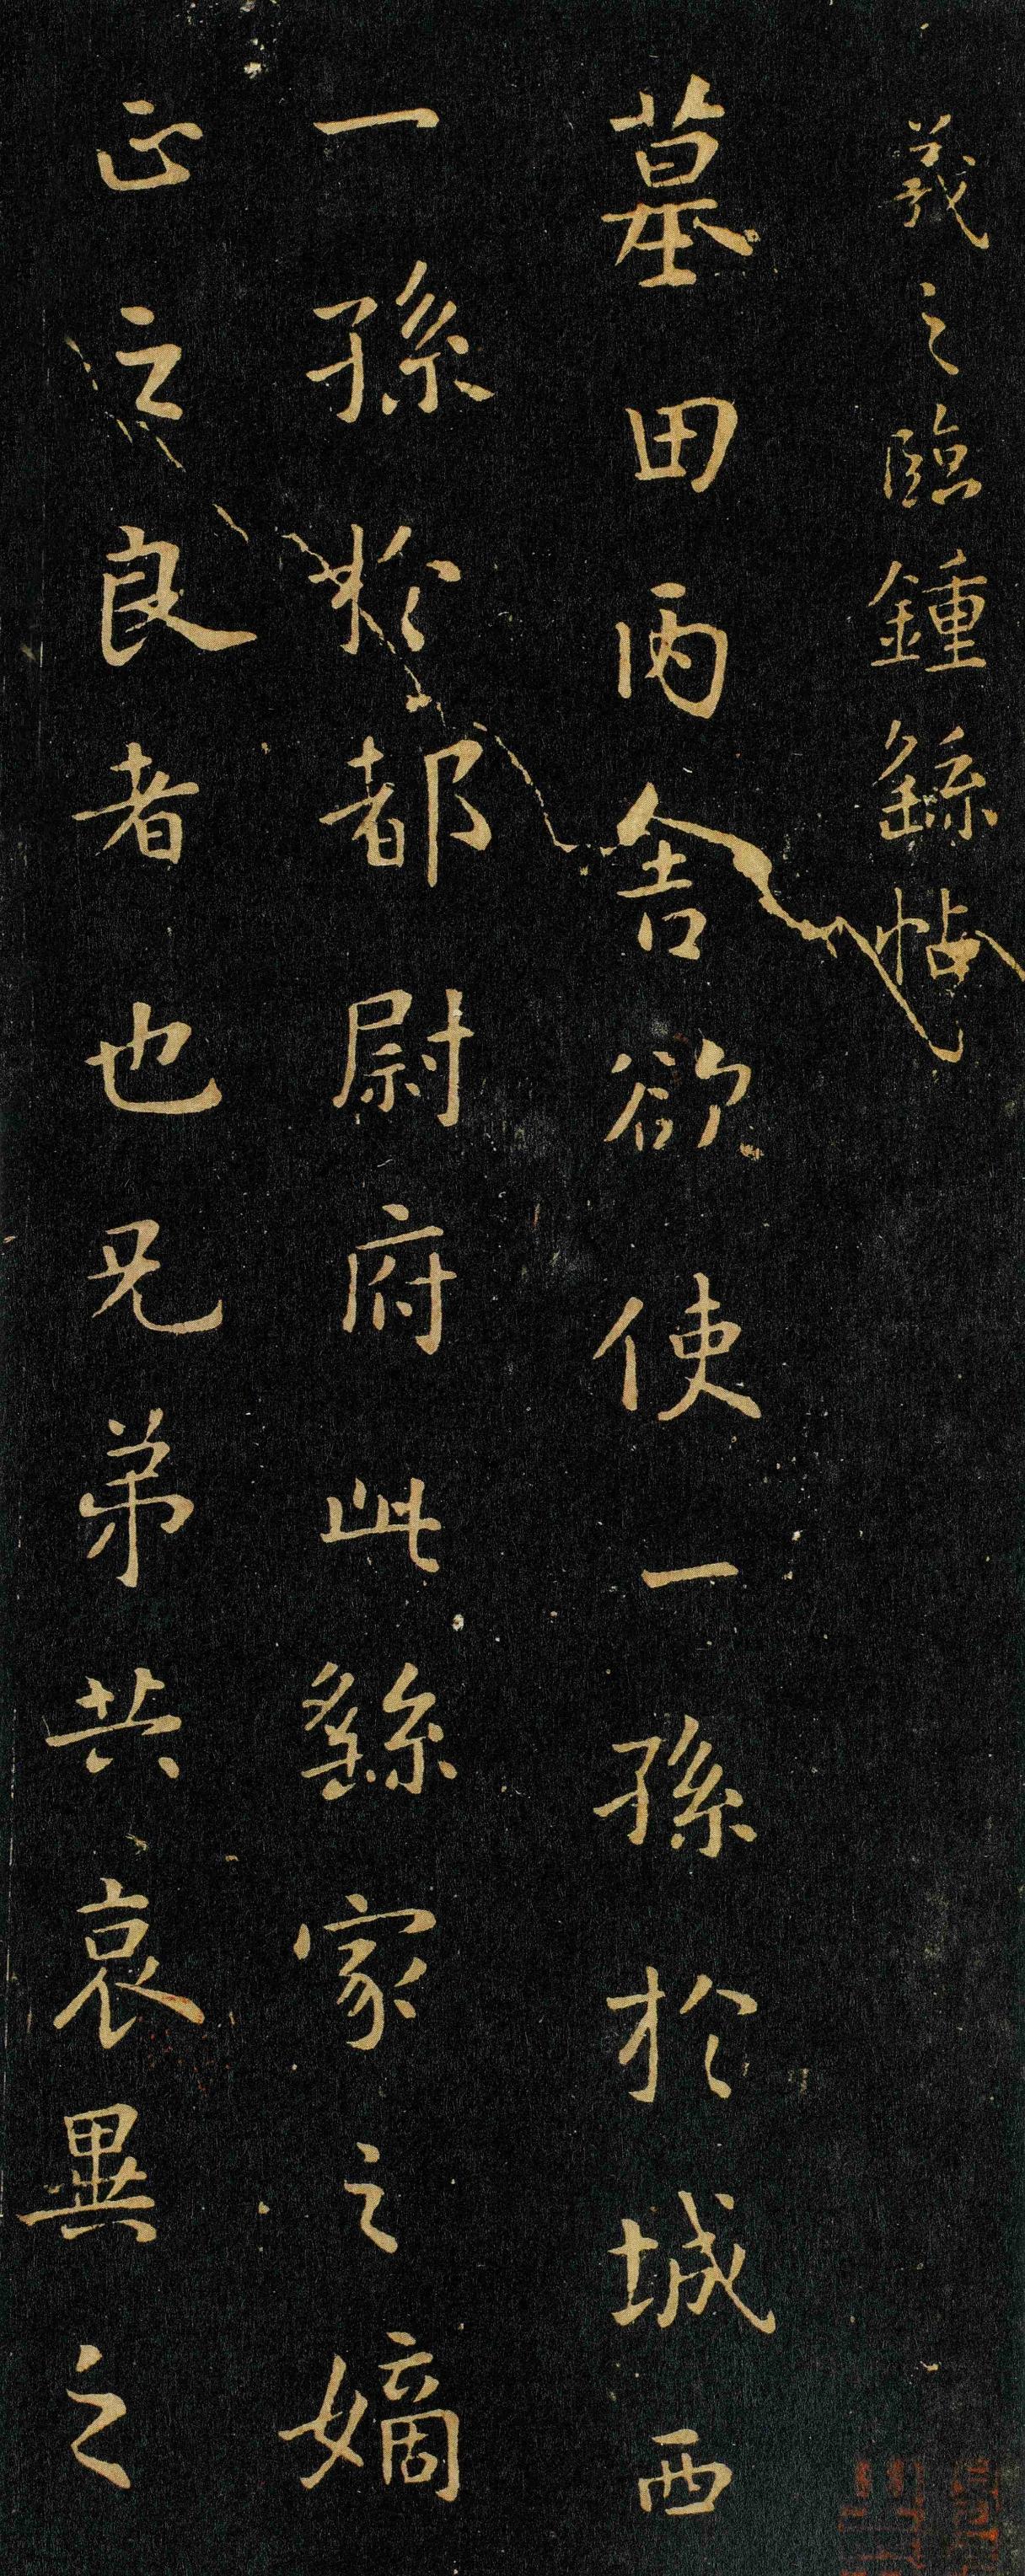 羲之臨鍾繇帖
墓田丙舍欲使一孫於城西
一孫於都尉府此繇家之嫡
正之良者也兄弟共哀異之